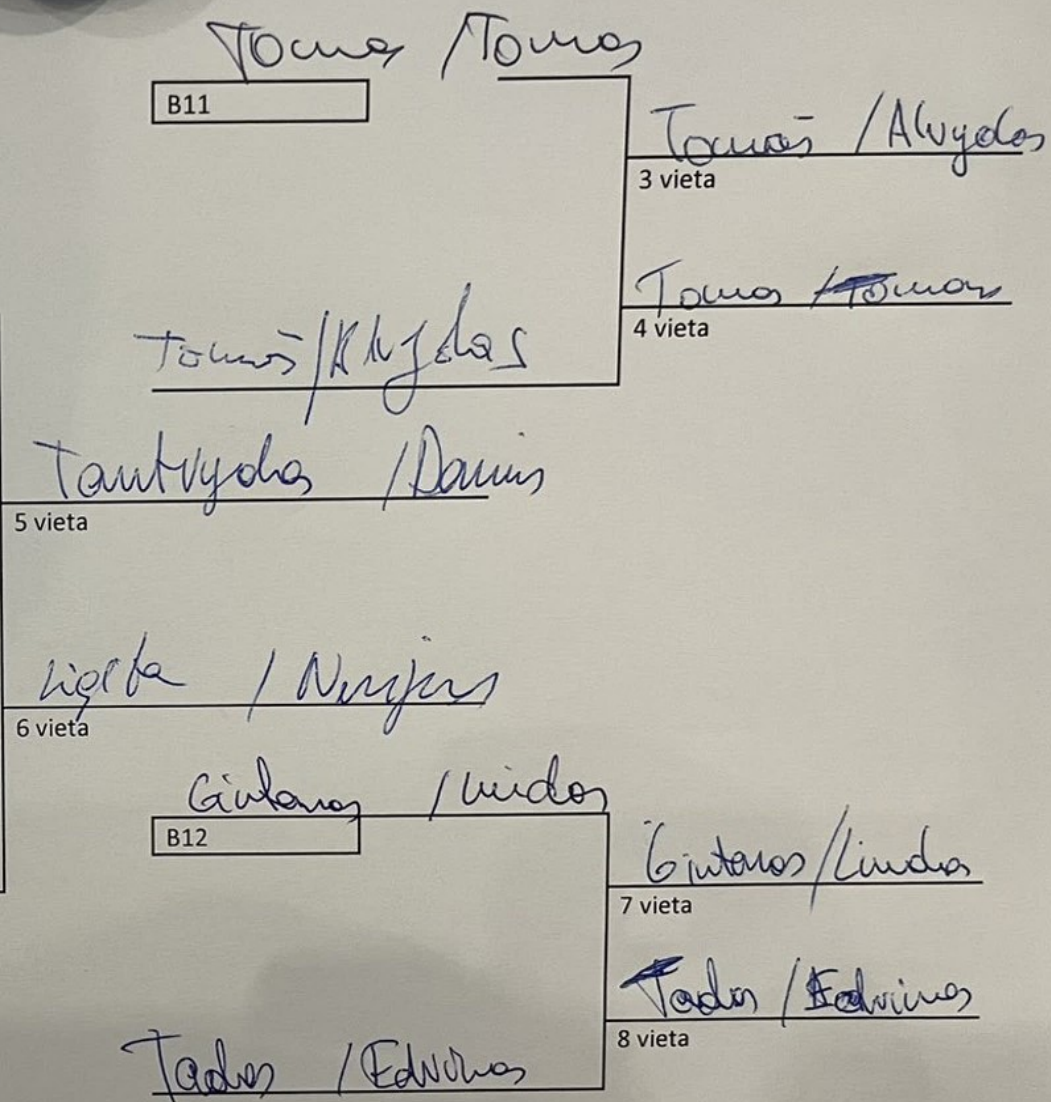 Tomas / Tomas
B11
Tomas / Alvydas
3 vieta
Tomas / Tomas
4 vieta
Tomas / Alvydas
Tautvydas / Darius
5 vieta
Ligita / Nerijus
6 vieta
Gintaras /
B12
Gintaras / Lindas
7 vieta
Tadas / Edvinas
8 vieta
Tadas / Edvinas